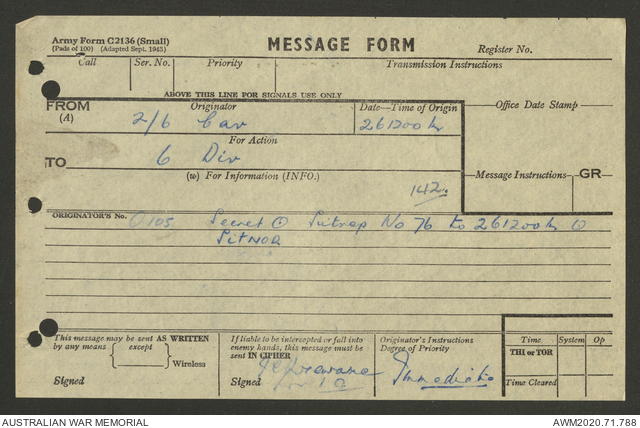 Army Form C2136 (Small)
(Pads of 100) (Adapted Sept. 1943)
MESSAGE FORM
Register No.
Call Ser. No. Priority Transmission Instructions
ABOVE THIS LINE FOR SIGNALS USE ONLY
FROM Originator Date—Time of Origin Office Date Stamp
(A) 2/6 Cav 261200 hr
For Action
TO 6 Div
(w) For Information (INFO.) Message Instructions GR
142.
ORIGINATOR'S No. O105 Secret Sitrep No 76 to 261200 hr
SITNOR
This message may be sent AS WRITTEN
by any means except
Wireless
Signed
If liable to be intercepted or fall into
enemy hands, this message must be
sent IN CIPHER
Signed
IO
Originator's Instructions
Degree of Priority
Immediate
Time System Op
THI or TOR
Time Cleared
AUSTRALIAN WAR MEMORIAL AWM2020.71.788